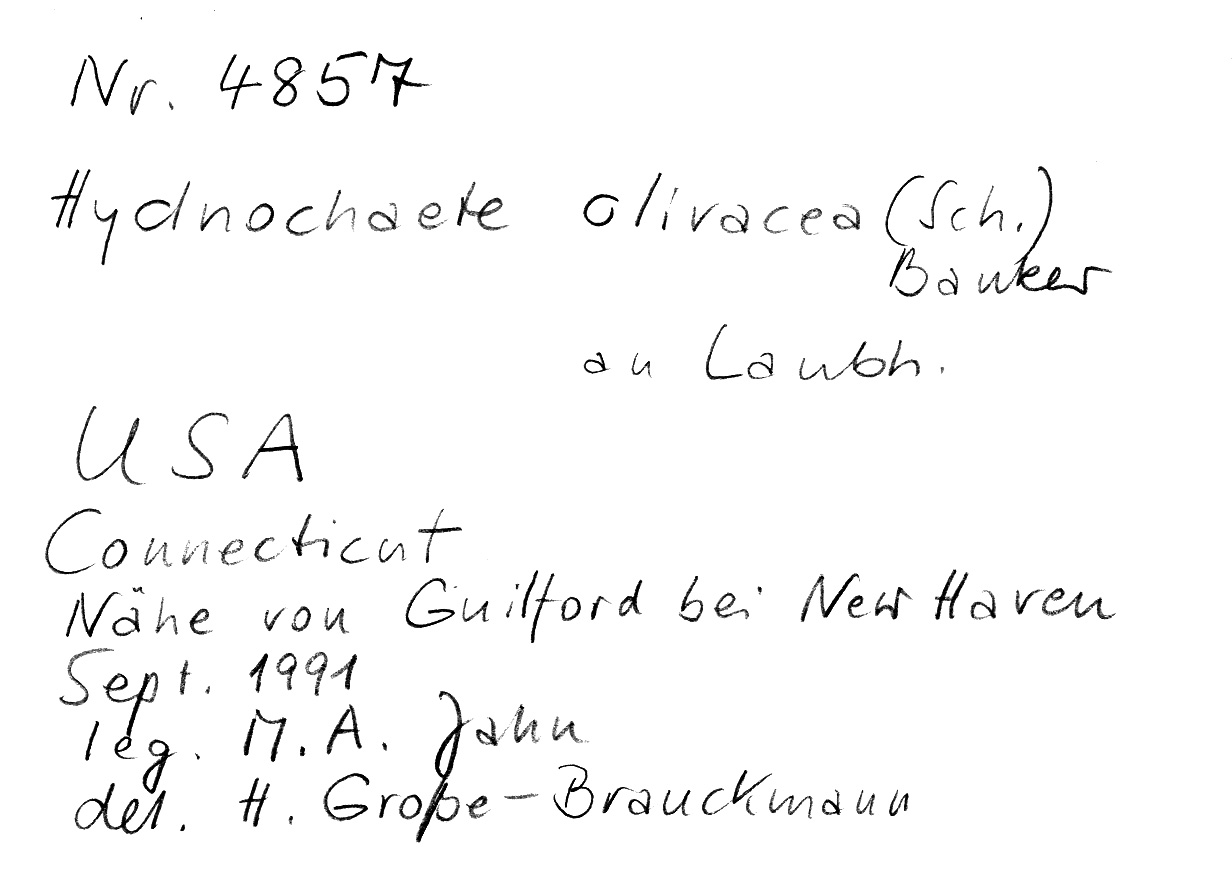 Nr. 4857
Hydnochaete olivacea (Sch.)
Banker
an Laubh.
USA
Connecticut
Nähe von Guilford bei New Haven
Sept. 1991
leg. M. A. Jahn
det. H. Große-Brauckmann